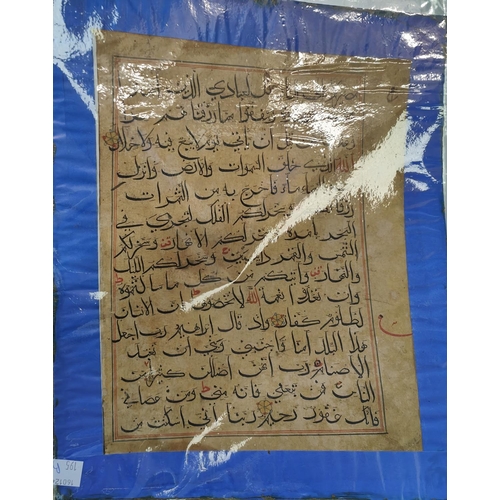 قل لعبادي الذين امنوا
وينفقوا مما رزقناهم
قبل ان ياتي يوم لا بيع فيه ولا خلال
الله الذي خلق السموات والارض وانزل
ماء فاخرج به من الثمرات
رزقا لكم وسخر لكم الفلك لتجري في
البحر بامره وسخر لكم الانهار وسخر لكم
الشمس والقمر دائبين وسخر لكم الليل
والنهار واتيكم من كل ما سالتموه
وان تعدوا نعمة الله لا تحصوها ان الانسان
لظلوم كفار واذ قال ابرهيم رب اجعل
هذا البلد امنا واجنبني وبني ان نعبد
الاصنام رب انهن اضللن كثيرا من
الناس فمن تبعني فانه مني ومن عصاني
فانك غفور رحيم ربنا اني اسكنت من